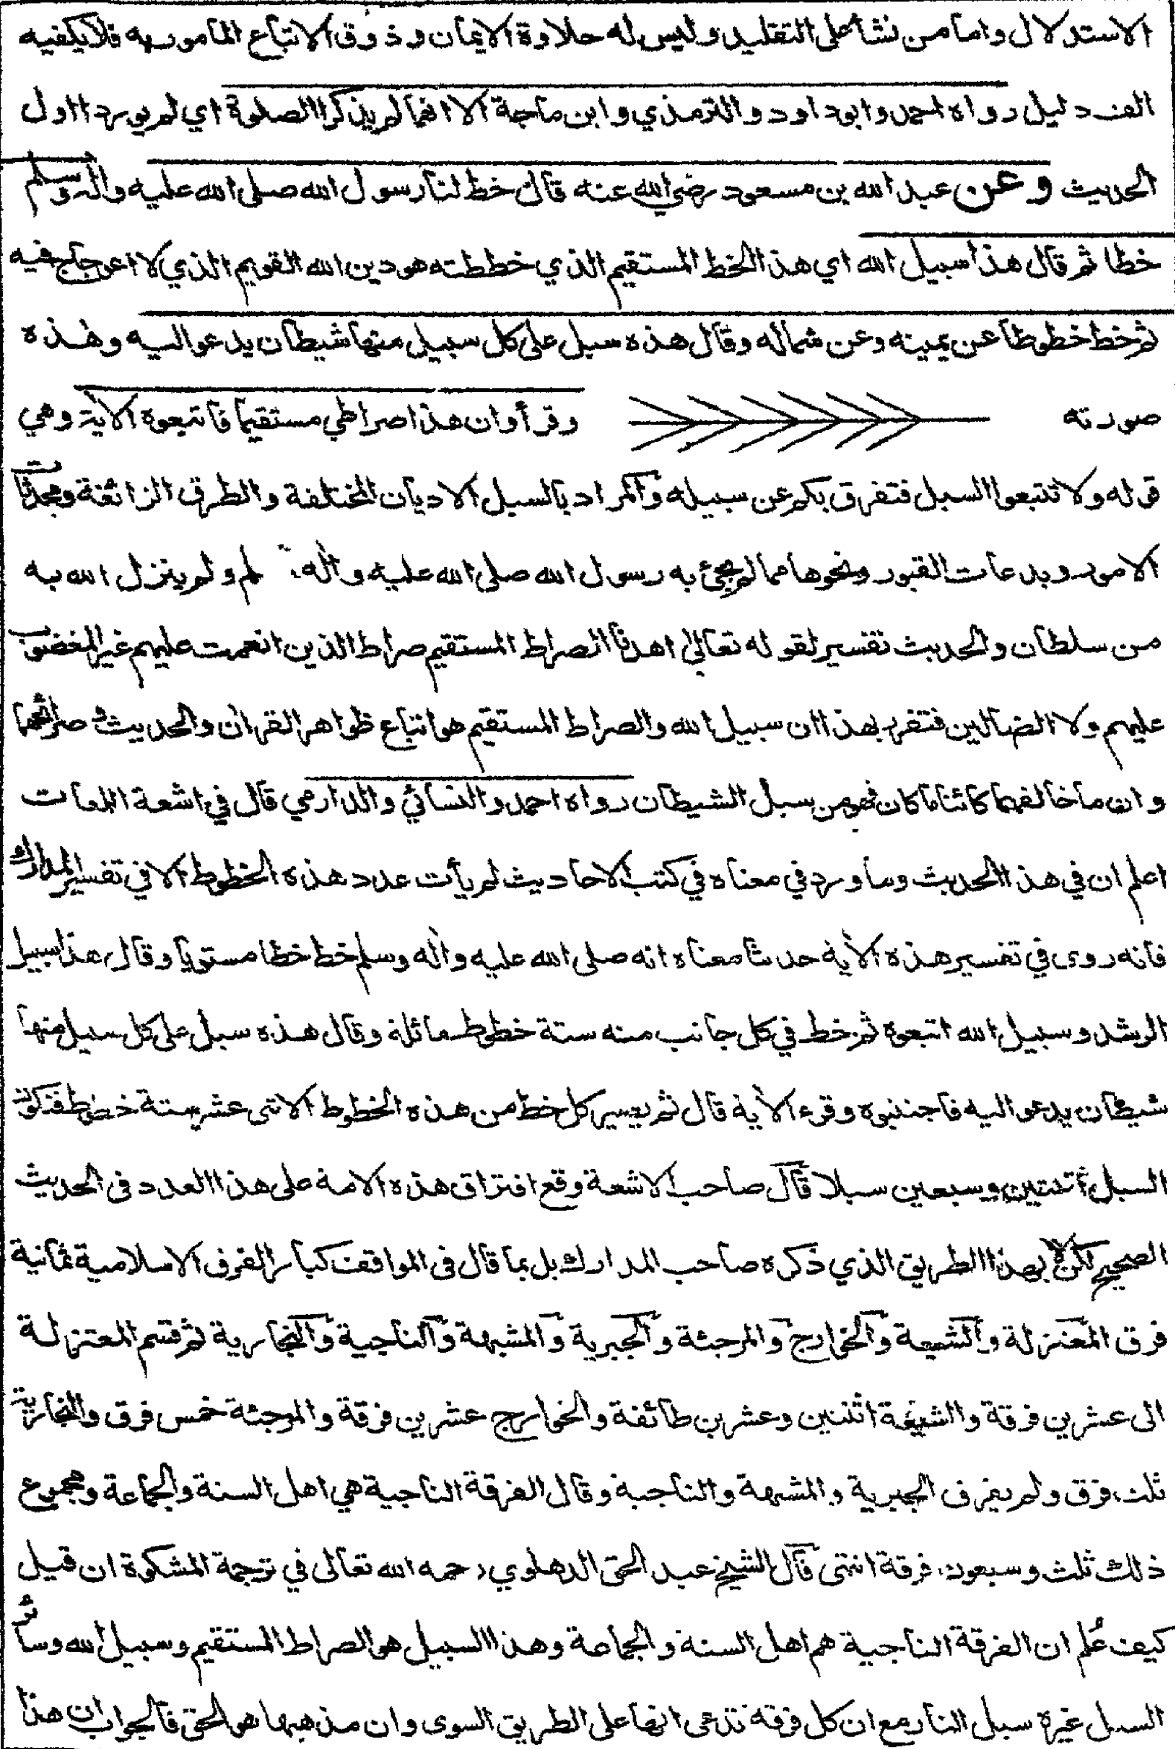 الاستدلال واما من نشأ على التقليد وليس له حلاوة الايمان وذوق الاتباع المأمور به فلا يكفيه
الف دليل رواه احمد وابو داود والترمذي وابن ماجة الا انهما لم يذكرا الصلوة اي لم يوردا اول
الحديث وعن عبد الله بن مسعود رضي الله عنه قال خط لنا رسول الله صلى الله عليه واله وسلم
خطا ثم قال هذا سبيل الله اي هذا الخط المستقيم الذي خططته هو دين الله القويم الذي لا اعوجاج فيه
ثم خط خطوطا عن يمينه وعن شماله وقال هذه سبل على كل سبيل منها شيطان يدعو اليه وهذه
صورته وقرأ وان هذا صراطي مستقيما فاتبعوه الآية وهي
قوله ولا تتبعوا السبل فتفرق بكم عن سبيله والمراد بالسبل الاديان المختلفة والطرق الزائغة ومحدثات
الامور وبدعات القبور ونحوها مما لم يجئ به رسول الله صلى الله عليه وآله لم ولم ينزل الله به
من سلطان والحديث تفسير لقوله تعالى اهدنا الصراط المستقيم صراط الذين انعمت عليهم غير المغضوب
عليهم ولا الضالين فتقرر بهذا ان سبيل الله والصراط المستقيم هو اتباع ظواهر القرآن والحديث وصرائحهما
وان ما خالفهما كائنا ما كان فهو من سبل الشيطان رواه احمد والنسائي والدارمي قال في اشعة اللمعات
اعلم ان في هذا الحديث وما ورد في معناه في كتب الاحاديث لم يأت عدد هذه الخطوط الا في تفسير المدارك
فانه روى في تفسير هذه الآية حديثا معناه انه صلى الله عليه وآله وسلم خط خطا مستويا وقال هذا سبيل
الرشد وسبيل الله اتبعوه ثم خط في كل جانب منه ستة خطوط مائلة وقال هذه سبل على كل سبيل منها
شيطان يدعو اليه فاجتنبوه وقرء الآية قال ثم يصير كل خط من هذه الخطوط الاثنى عشر ستة خطوط فتكون
السبل اثنتين وسبعين سبلا قال صاحب الاشعة وقع افتراق هذه الامة على هذا العدد فى الحديث
الصحيح لكن لا بهذا الطريق الذي ذكره صاحب المدارك بل بما قال فى المواقف كبار الفرق الاسلامية ثمانية
فرق المعتزلة والشيعة والخوارج والمرجئة والجبرية والمشبهة والناجية والنجارية ثم قسم المعتزلة
الى عشرين فرقة والشيعة اثنتين وعشرين طائفة والخوارج عشرين فرقة والمرجئة خمس فرق والنجارية
ثلث فرق ولم يفرق الجبرية والمشبهة والناجية وقال الفرقة الناجية هي اهل السنة والجماعة ومجموع
ذلك ثلث وسبعون فرقة انتهى قال الشيخ عبد الحق الدهلوي رحمه الله تعالى في ترجمة المشكوة ان قيل
كيف عُلم ان الفرقة الناجية هم اهل السنة والجماعة وهذا السبيل هو الصراط المستقيم وسبيل الله وسائر
السبل غيره سبل النار مع ان كل فرقة تدعى انها على الطريق السوى وان مذهبها هو الحق فالجواب ان هذا